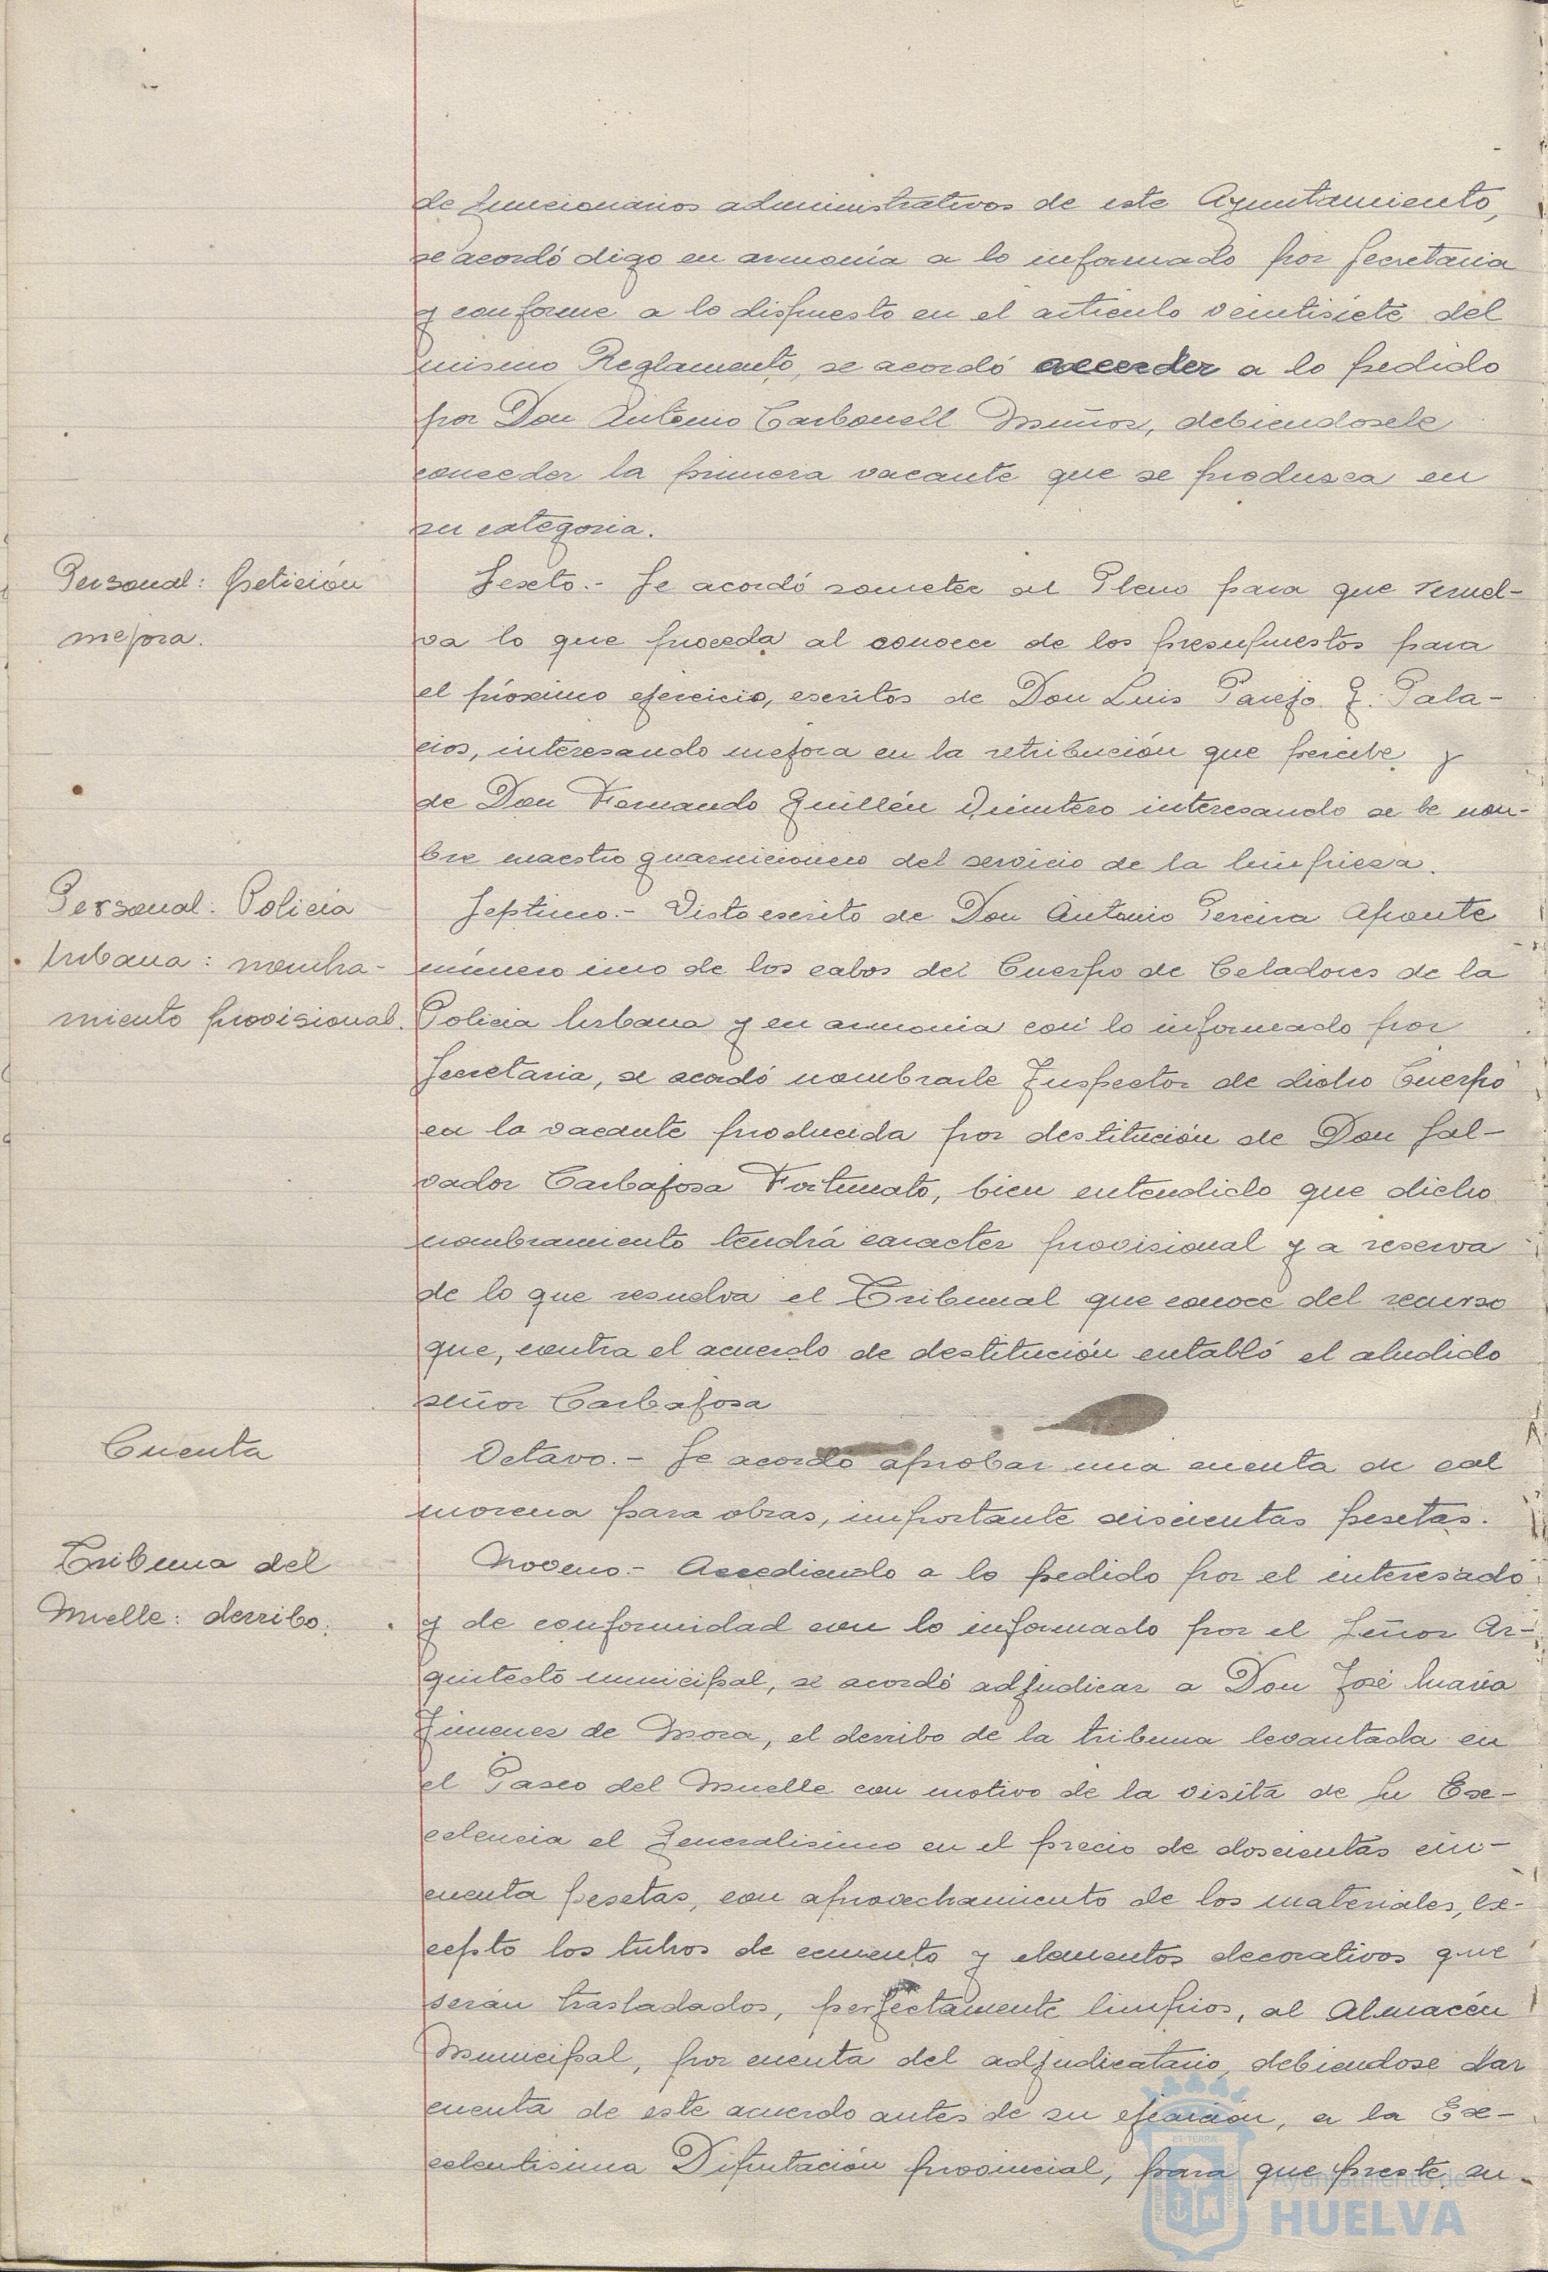 de funcionarios administrativos de este Ayuntamiento,
se acordó digo en armonía a lo informado por Secretaria
y conforme a lo dispuesto en el artículo veintisiete del
mismo Reglamento, se acordó acceder a lo pedido
por Don Antonio Carbonell Muñoz, debiendosele
conceder la primera vacante que se produzca en
su categoria.
Personal: petición
mejora.
Sexto.- Se acordó someter al Pleno para que resuel-
va lo que proceda al conocer de los presupuestos para
el próximo ejercicio, escritos de Don Luis Parejo G. Pala-
cios, interesando mejora en la retribución que percibe y
de Don Fernando Guillén Quintero interesando se le nom-
bre maestro guarnicionero del servicio de la limpieza.
Personal: Policía
Urbana: nombra-
miento provisional.
Septimo.- Visto escrito de Don Antonio Pereira Aponte
número uno de los cabos del Cuerpo de Celadores de la
Policia Urbana y en armonia con lo informado por
Secretaria, se acordó nombrarle Inspector de dicho Cuerpo
en la vacante producida por destitución de Don Sal-
vador Carbajosa Fortunato, bien entendido que dicho
nombramiento tendrá caracter provisional y a reserva
de lo que resuelva el Tribunal que conoce del recurso
que, contra el acuerdo de destitución entabló el aludido
señor Carbajosa
Cuenta
Octavo.- Se acordó aprobar una cuenta de cal
morena para obras, importante seiscientas pesetas.
Tribuna del
Muelle: derribo.
Noveno.- Accediendo a lo pedido por el interesado
y de conformidad con lo informado por el Señor Ar-
quitecto municipal, se acordó adjudicar a Don José Maria
Jimenez de Mora, el derribo de la tribuna levantada en
el Paseo del Muelle con motivo de la visita de Su Exce-
lencia el Generalisimo en el precio de doscientas cin-
cuenta pesetas, con aprovechamiento de los materiales, ex-
cepto los tubos de cemento y elementos decorativos que
serán trasladados, perfectamente limpios, al Almacén
Municipal, por cuenta del adjudicatario, debiendose dar
cuenta de este acuerdo antes de su ejecución, a la Ex-
celentisima Diputación provincial, para que preste su
Ayuntamiento de
HUELVA